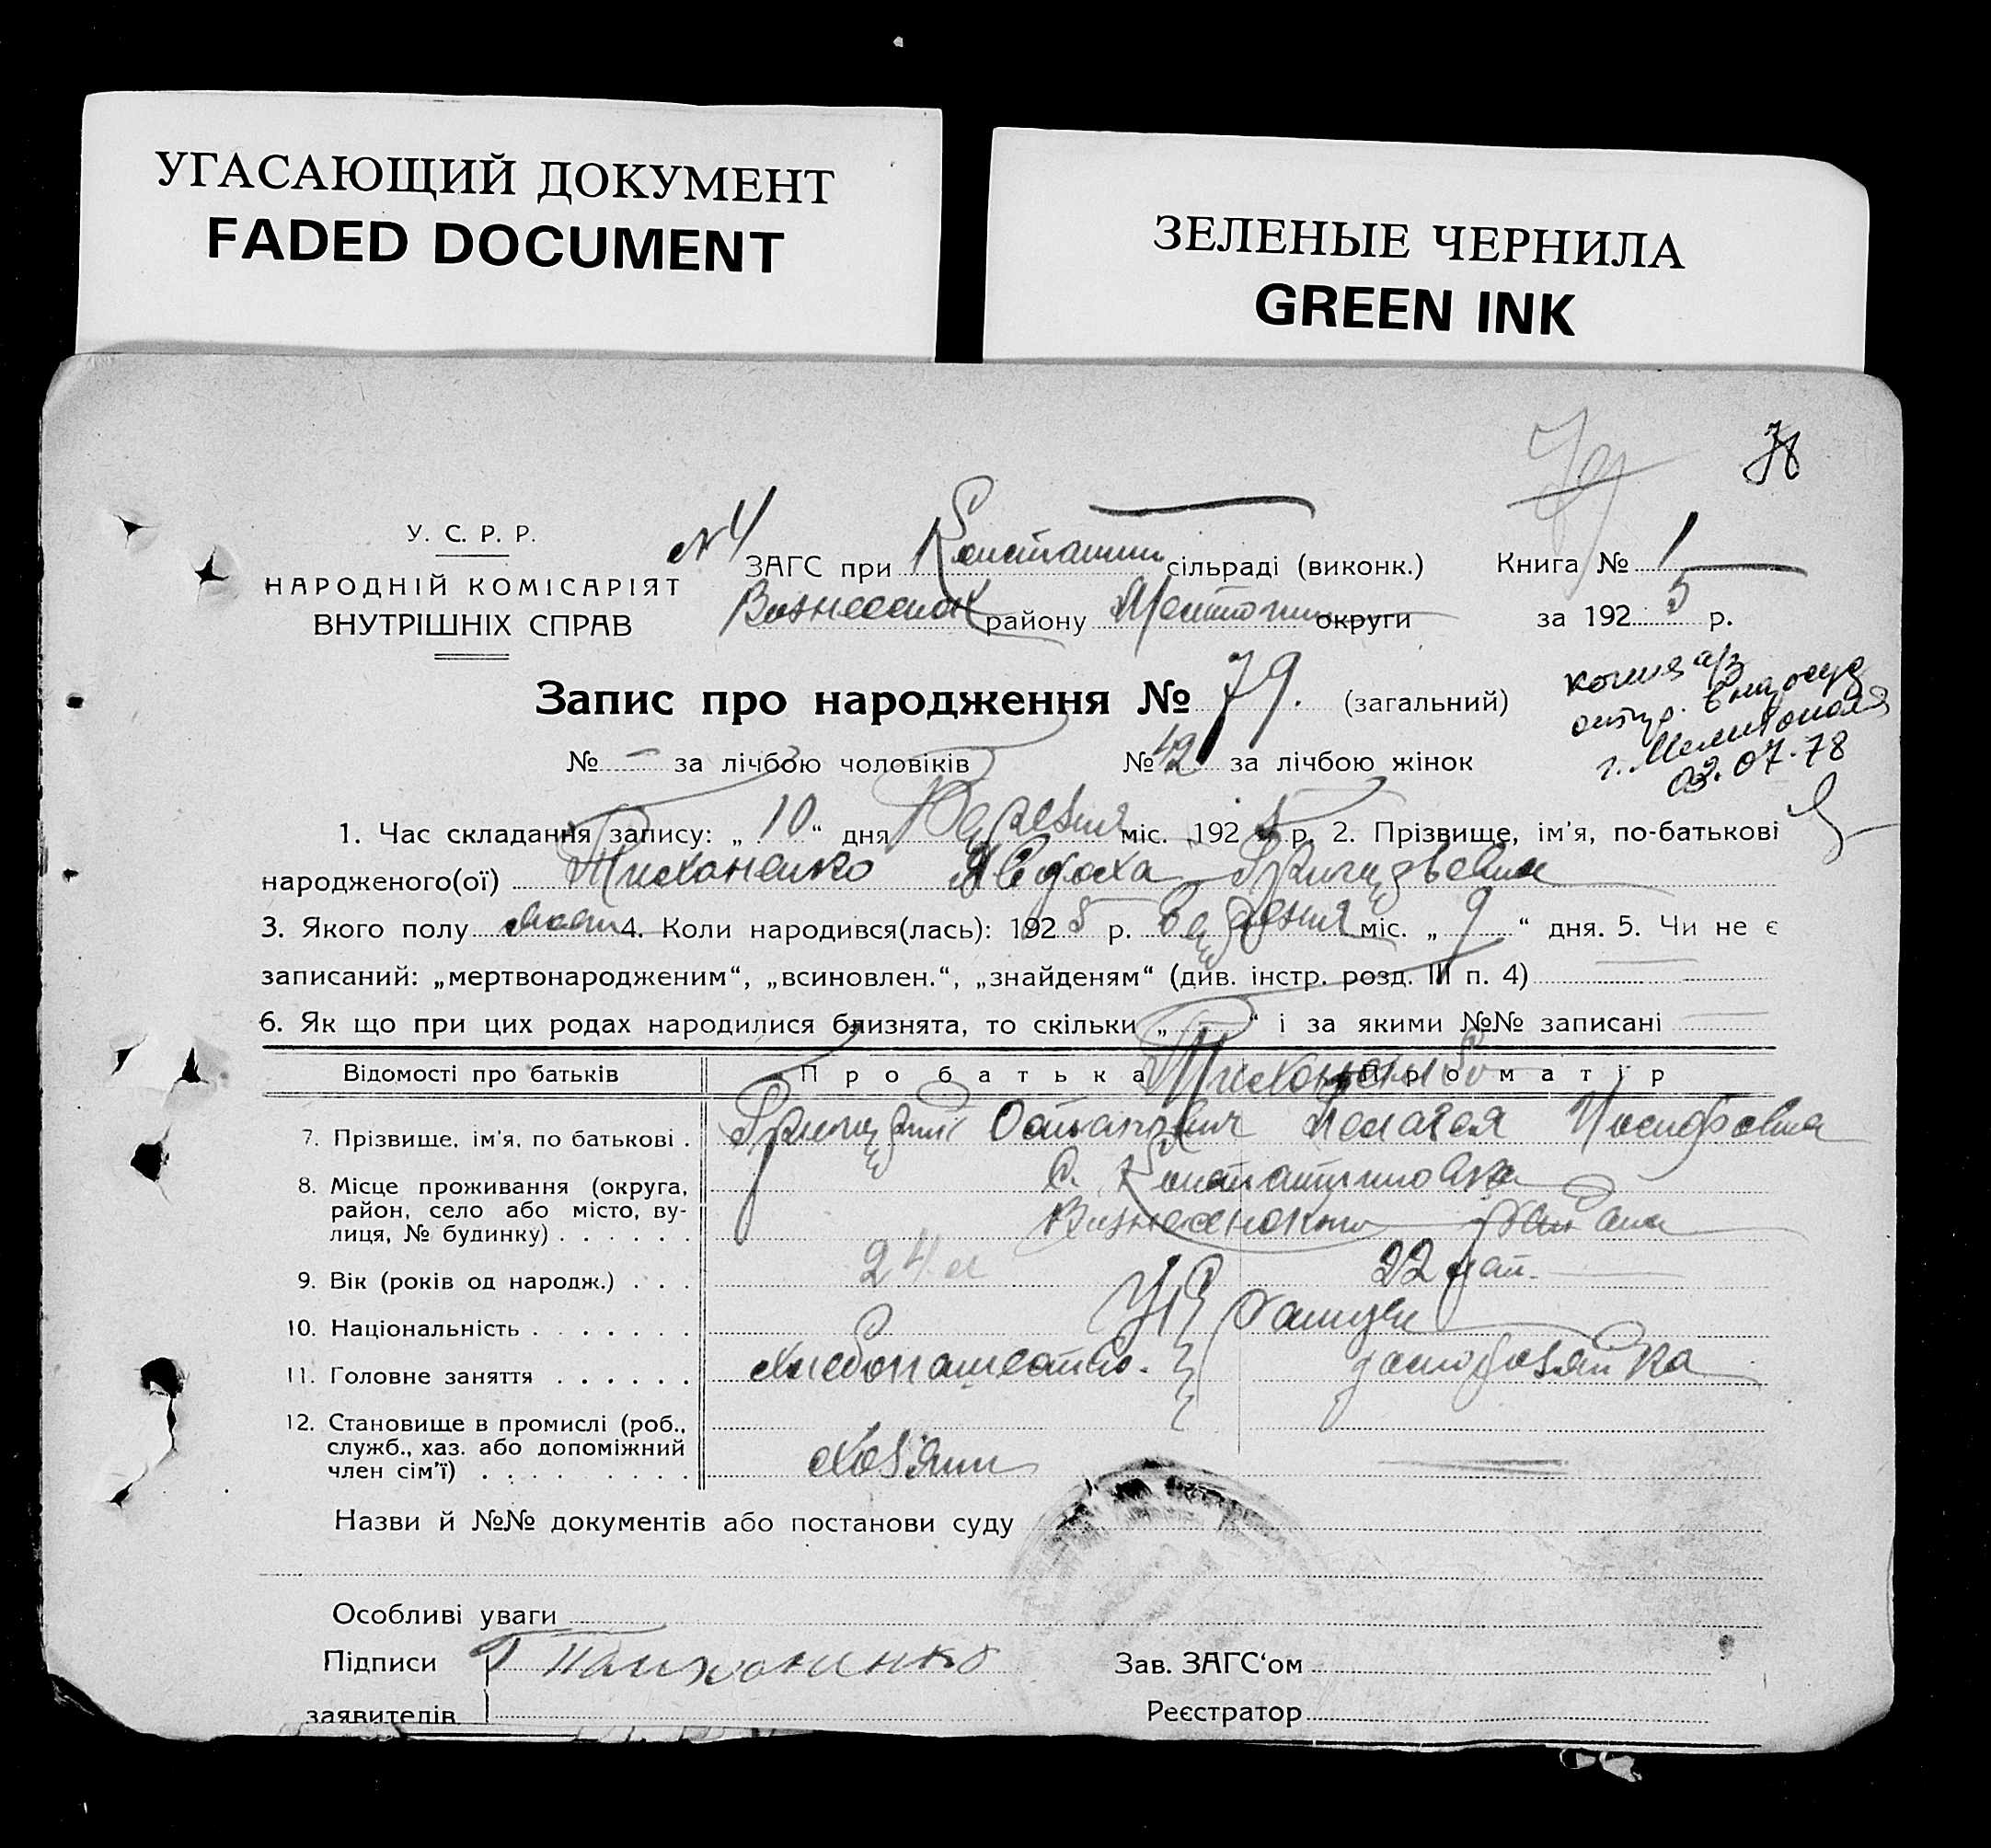 УГАСАЮЩИЙ ДОКУМЕНТ
FADED DOCUMENT
ЗЕЛЕНЫЕ ЧЕРНИЛА
GREEN INK
78
У. С. Р. Р.
НАРОДНІЙ КОМІСАРІЯТ
ВНУТРІШНІХ СПРАВ
№4 ЗАГС при Константин сільраді (виконк.) Книга № 1
Вознесенск району округи за 1925 р.
Запис про народження № 79. (загальний)
копия а/з
г. Мелитополя
03.07.78
№ – за лічбою чоловіків № 42 за лічбою жінок
1. Час складання запису: „ 10 “ дня Березня міс. 1925 р. 2. Прізвище, ім'я, по-батькові
народженого(ої) Тихоненко Явдоха Григорьевна
3. Якого полу 4. Коли народився(лась): 1925 р. березня міс. „ 9 “ дня. 5. Чи не є
записаний: „мертвонародженим“, „всиновлен.“, „знайденям“ (див. інстр. розд. III п. 4)
6. Як що при цих родах народилися близнята, то скільки „ – “ і за якими №№ записані
Відомості про батьків Про батька Про матір
Тихоненко
7. Прізвище, ім'я, по батькові . Григорий Остапович Пелагея Иосифовна
8. Місце проживання (округа, район, село або місто, ву-лиця, № будинку) . . . . . . с. Константиновка
Вознесенского района
9. Вік (років од народж.) . . . 24 л 22 лет.
10. Національність . . . . . . . Українці
11. Головне заняття . . . . . . Хлебопашество. домохозяйка
12. Становище в промислі (роб., служб., хаз. або допоміжний член сім'ї) . . . . . . . . . Хозяин
Назви й №№ документів або постанови суду
Особливі уваги
Підписи Г Тихоненко Зав. ЗАГС‘ом
заявителів Реєстратор